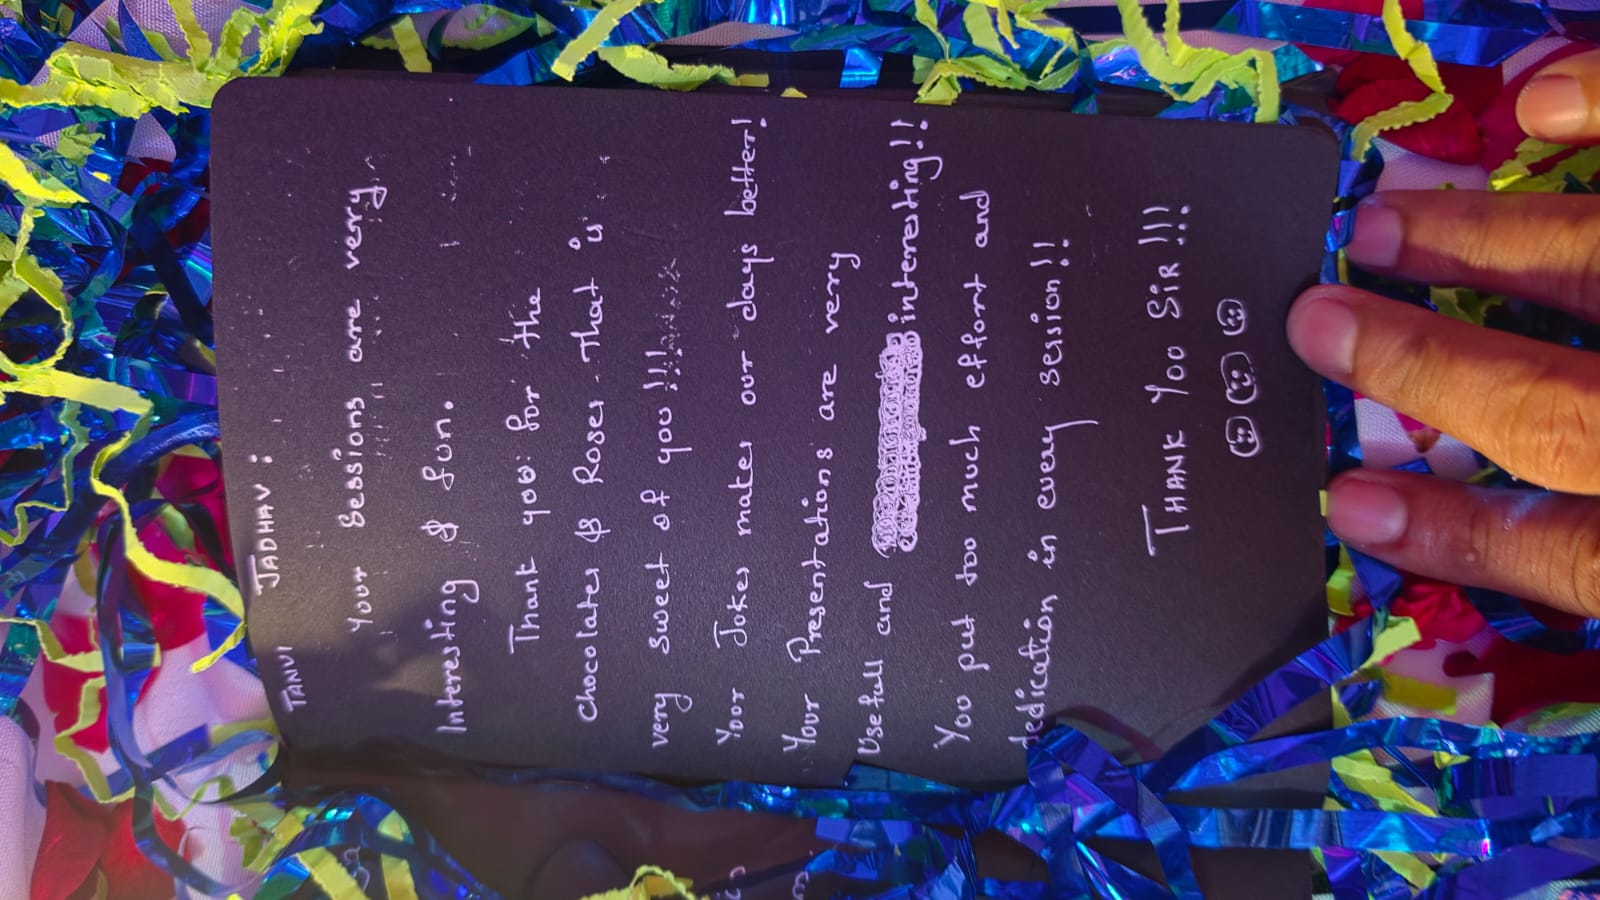 TANVI JADHAV :
Your Sessions are very
Interesting & fun.
Thank you for the
Chocolates & Roses That is
very sweet of you !!!
Your Jokes makes our days better!
Your Presentations are very
Usefull and interresting!!
You put too much effort and
dedication in every session!!
THANK YOU SIR!!!